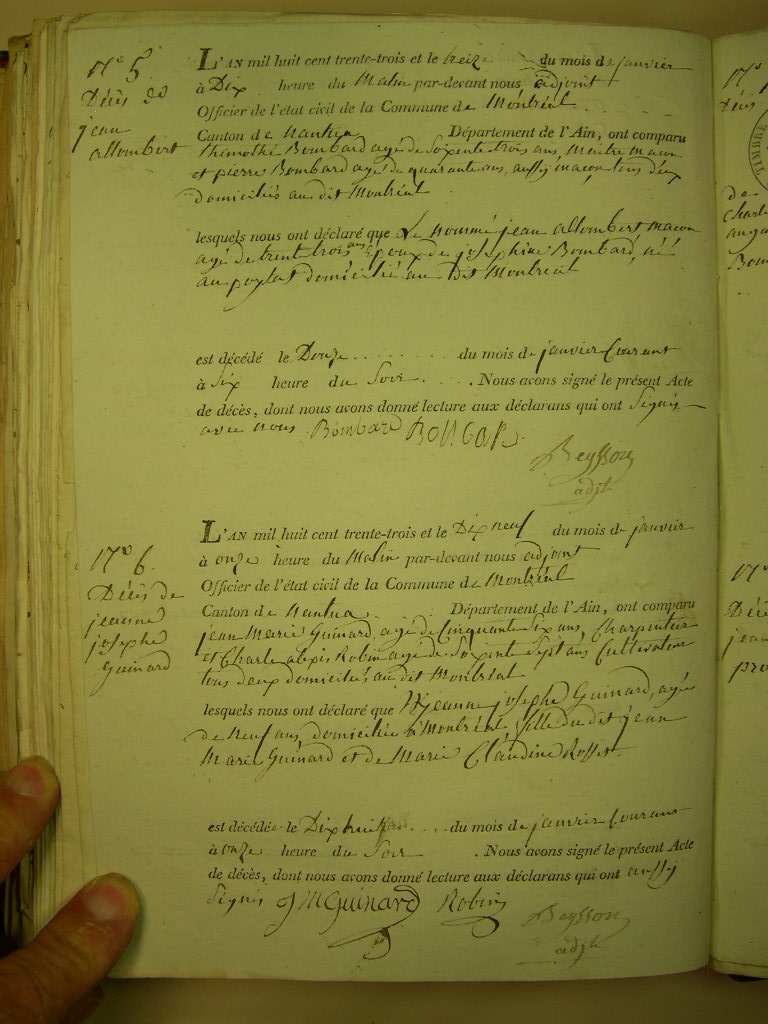 N.o 5.
Décès de
jean
allombert
L'AN mil huit cent trente-trois et le treize du mois de janvier
à Dix heure du Matin par-devant nous adjoint
Officier de l'état civil de la Commune de Montréal
Canton de nantua Département de l'Ain, ont comparu
Bombard agé de Soixente trois ans, Maitre macon
et pierre Bombard agé de quarante ans, aussy macon tous deux
domiciliés au dit Montréal
lesquels nous ont déclaré que Le nommé jean allombert macon
agé de trente trois ans Epoux de josephine Bombard, né
au domicilié au Dit Montréal
est décédé le Douze du mois de janvier Courant
à Six heure du Soir Nous avons signé le présent Acte
de décès, dont nous avons donné lecture aux déclarans qui ont Signés
avec nous Bombard
Beysson
adjt
N.o 6.
Décès de
jeanne
josephe
Guinard
L'AN mil huit cent trente-trois et le Dix neuf du mois de janvier
à onze heure du Matin par-devant nous adjoint
Officier de l'état civil de la Commune de Montréal
Canton de Nantua Département de l'Ain, ont comparu
jean Marie Guinard, agé de Cinquante Six ans, Charpentier
et Charle alexis Robin agé de Soixente Sept ans Cultivateur
tous deux domiciliés au dit Montréal
lesquels nous ont déclaré que jeanne josephe Guinard, agée
de neuf ans, domiciliée à Montréal, fille du dit jean
Marie Guinard et de Marie Claudine Rosset
est décédée le Dixhuit du mois de janvier Courant
à onze heure du Soir Nous avons signé le présent Acte
de décès, dont nous avons donné lecture aux déclarans qui ont aussy
Signés JMGuinard Robin
Beysson
adjt
TIMBRE
de
Charle
Bom
jean